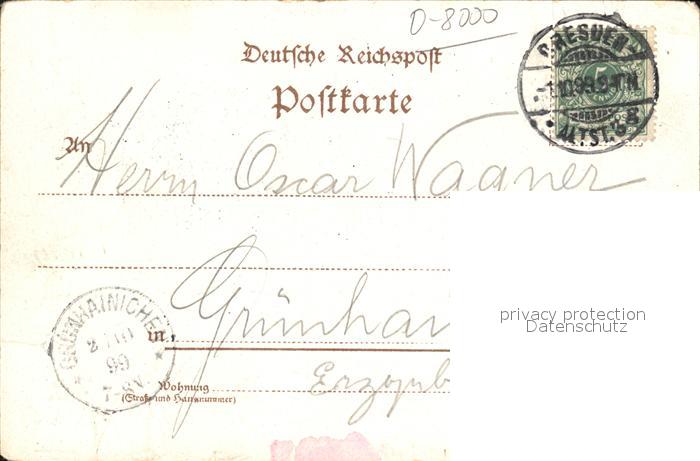 D-8000
Deutsche Reichspost
Postkarte
DRESDEN
-1.10.99.
ALTST.
An
Herrn Oscar Wagner
privacy protection
Datenschutz
Grünhai
in
GRÜNHAINICHEN
2 10
99
7-8V.
Erzgeb
Wohnung
(Straße und Hausnummer)